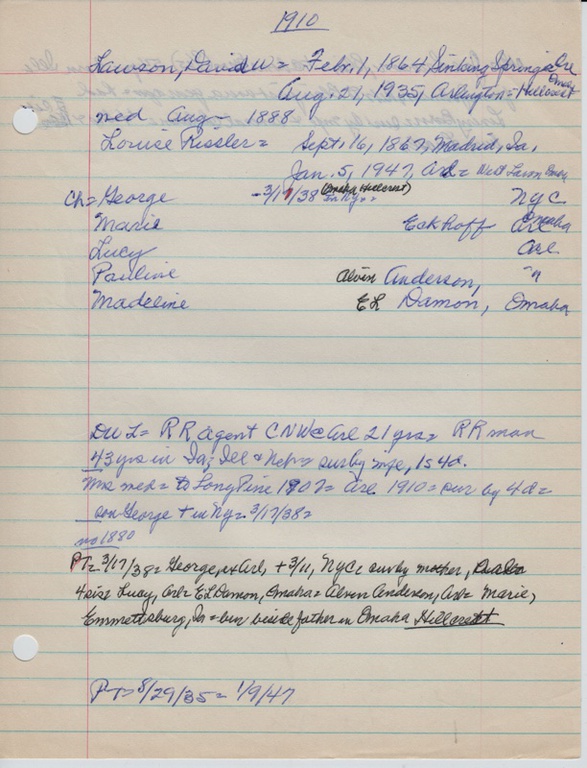 1910
Lawson, David W = Febr. 1, 1864 Sinking Springs
Aug. 21, 1935, Arlington = Hillcrest Omaha
med Aug - 1888
Louise Rissler = Sept. 16, 1867, Madrid, Ia.
Jan. 5, 1947, Arl =
Ch = George - 3/17/38 (Omaha Hillcrest) in Ny = NYC
Marie Eckhoff Arl Omaha
Lucy Arl
Pauline Alvin Anderson, "
Madeline E L Damon, Omaha
DWL = RR agent CNW @ Arl 21 yrs = RR man
43 yrs in Ia; Ill & Neb = sur by wife, 1s 4d.
Mrs med = to Long Pine 1907 = Arl 1910 = sur by 4d =
son George + in Ny = 3/17/38 =
no 1880
PT = 3/17/38 = George, ex Arl, + 3/11, NYC sur by mother,
4 sis Lucy, Arl = EL Damon, Omaha = Alvin Anderson, Arl = Marie,
Emmettsburg, Ia = bur beside father in Omaha Hillcrest
PT = 8/29/35 = 1/9/47